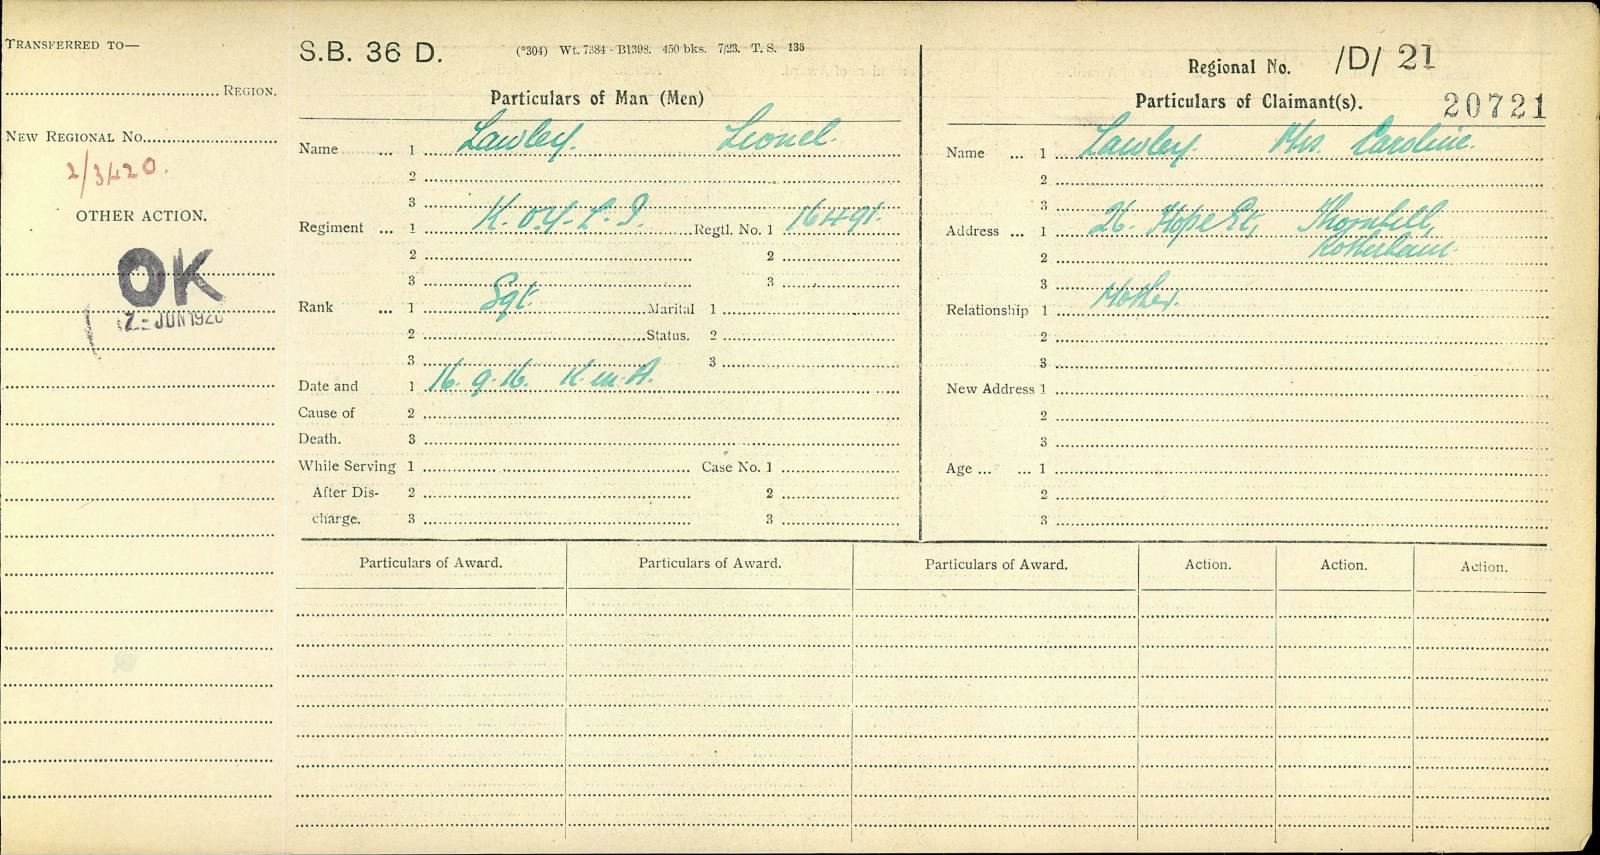 TRANSFERRED TO—
REGION.
NEW REGIONAL NO.
2/3420.
OTHER ACTION.
OK
2 - JUN 1926
S.B. 36 D.
(*304) Wt. 7384 - B1398. 450 bks. 7/23. T. S. 136
Particulars of Man (Men)
Name ... 1 Lawley. Lionel.
2
3
Regiment ... 1 K.O.Y.L.I. Regtl. No. 1 16491.
2 2
3 3
Rank ... 1 Sgt. Marital 1
2 Status. 2
3 3
Date and 1 16.9.16. K.in.A.
Cause of 2
Death. 3
While Serving 1 Case No. 1
After Dis- 2 2
charge. 3 3
Regional No. /D/ 21
Particulars of Claimant(s). 20721
Name ... 1 Lawley. Mrs. Caroline.
2
3
Address ... 1 26. Hope St, Thornhill,
2 Rotherham.
3
Relationship 1 Mother.
2
3
New Address 1
2
3
Age ... ... 1
2
3
Particulars of Award. Particulars of Award. Particulars of Award. Action. Action. Action.